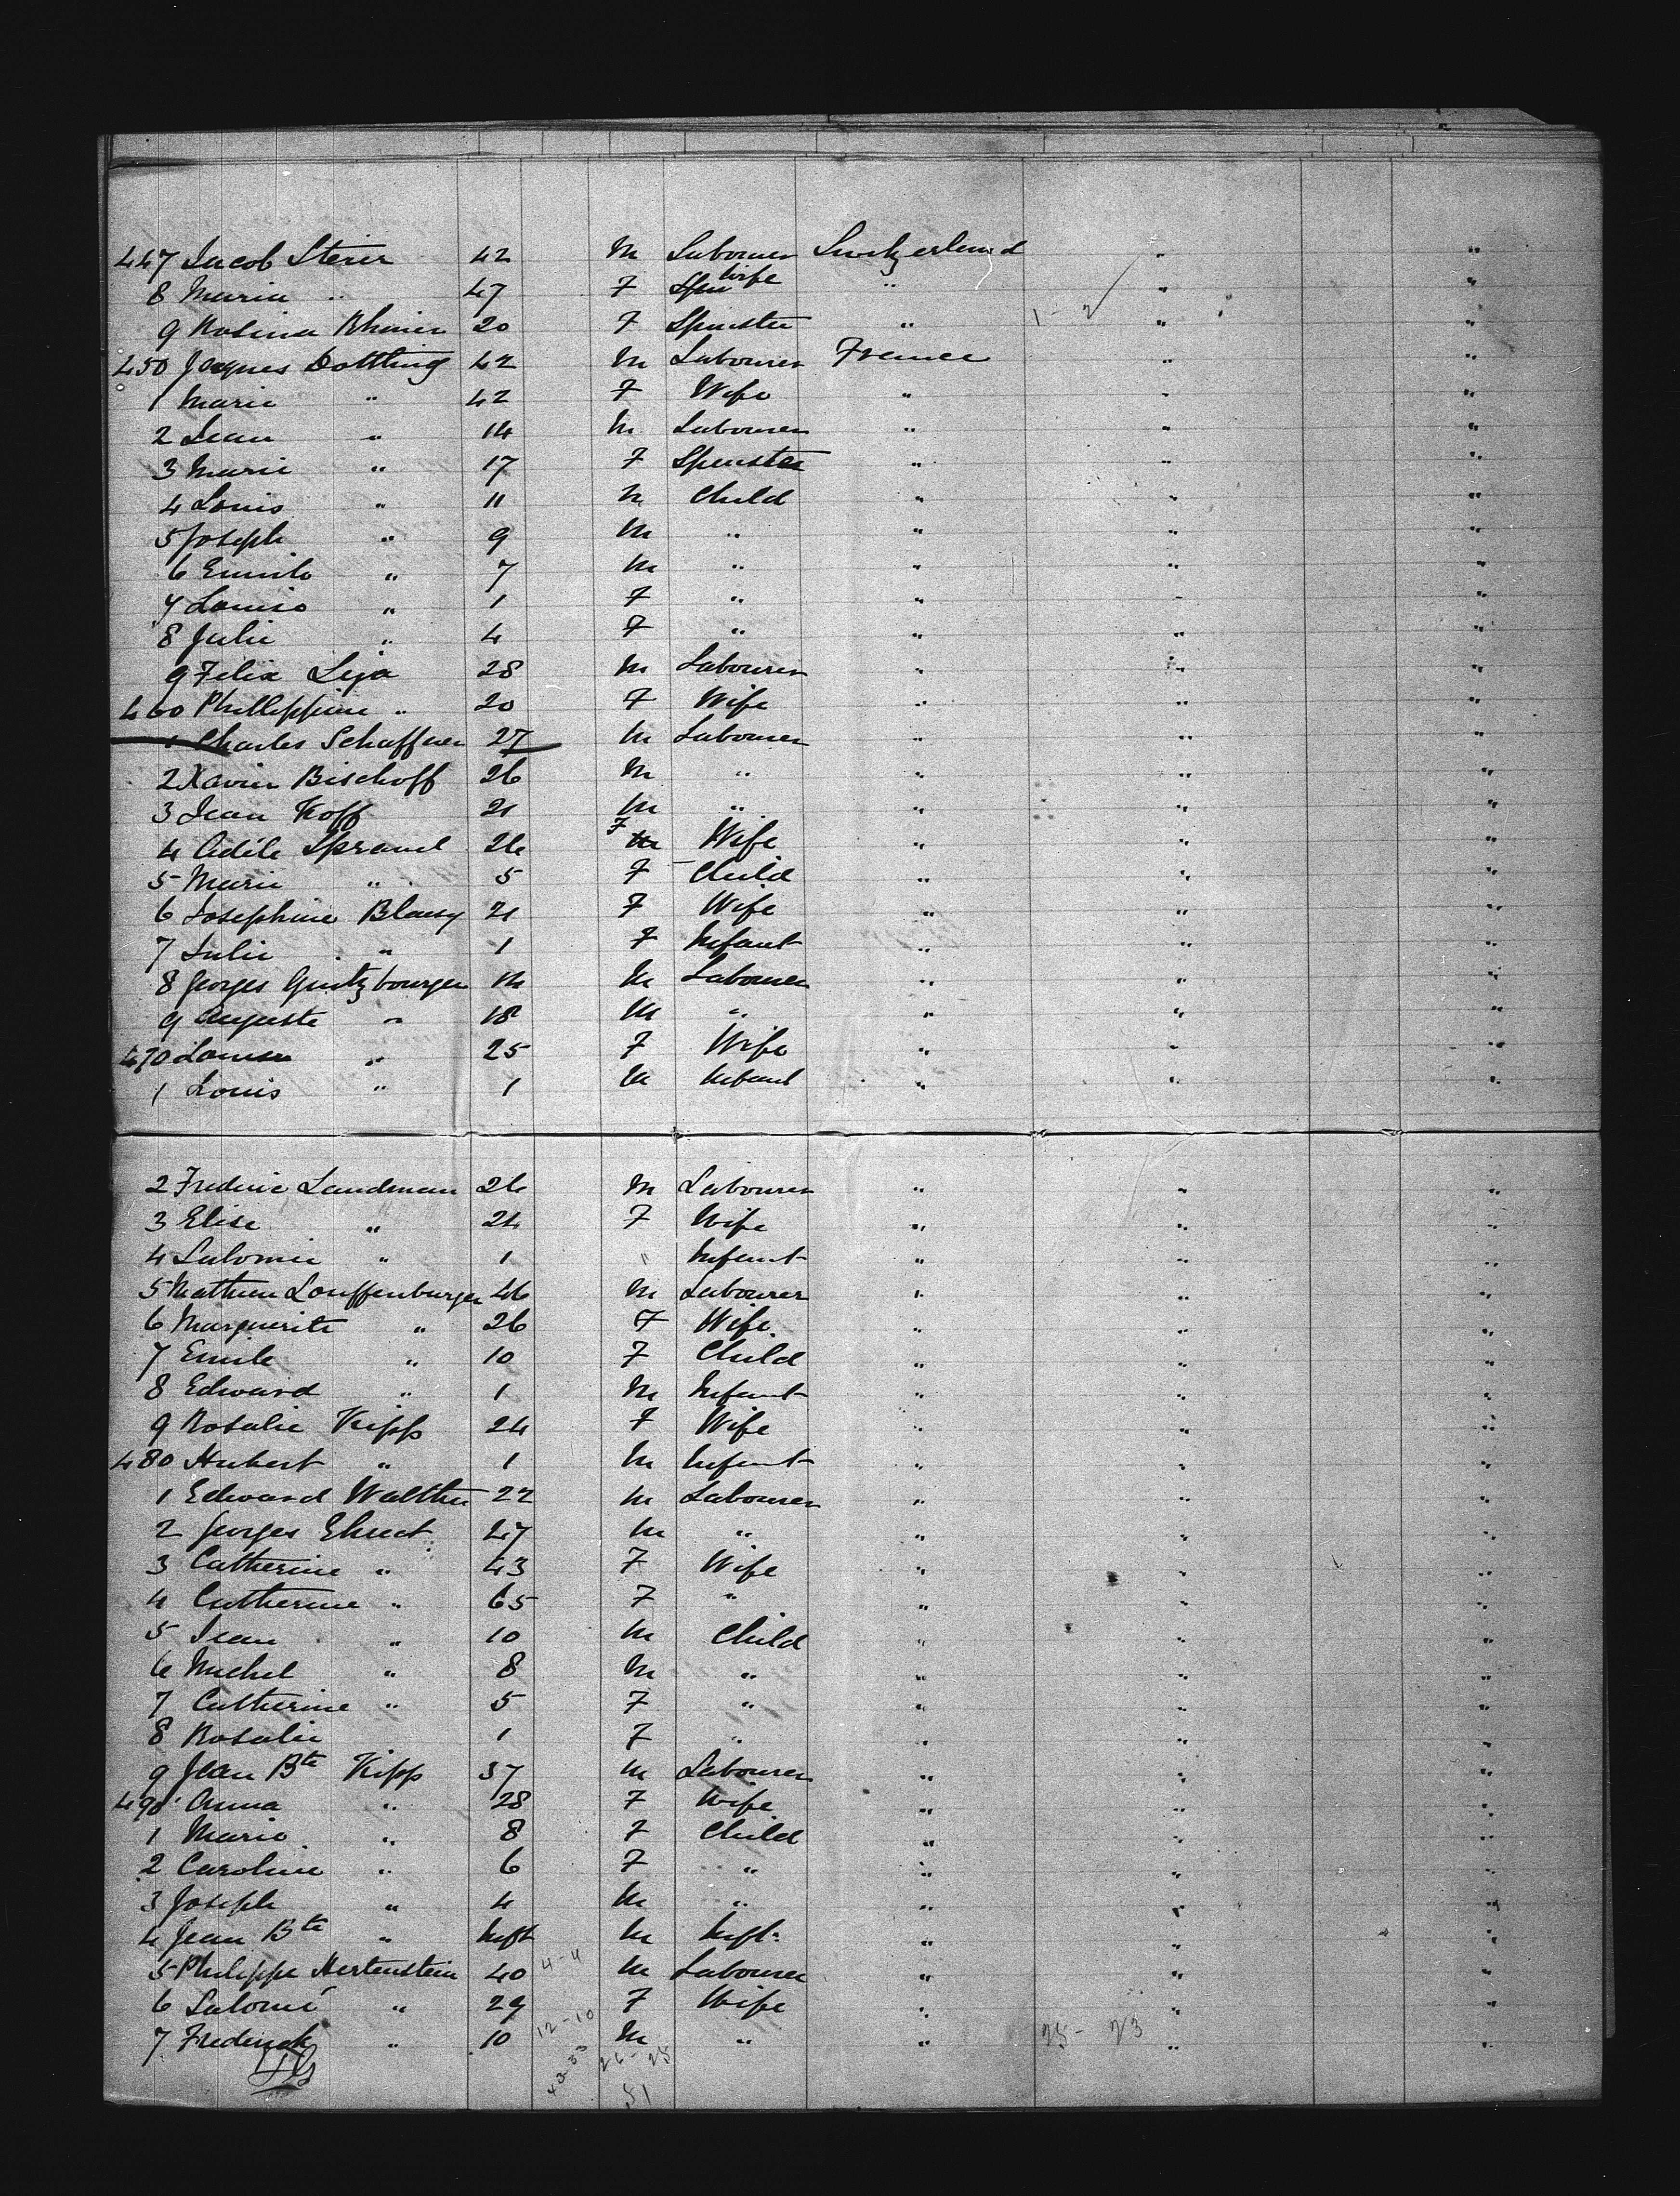 447 Jacob Sterer 42 M Labourer Switzerland " "
8 Maria " 47 F Spin wife " " "
9 Rosina Rhiner 20 F Spinster " 1-2 " "
450 Jaques Dottling 42 M Labourer France " "
1 Marie " 42 F Wife " " "
2 Jean " 14 M Labourer " " "
3 Marie " 17 F Spinster " " "
4 Louis " 11 M Child " " "
5 Joseph " 9 M " " " "
6 Emile " 7 M " " " "
7 Louise " 1 F " " " "
8 Julie " 4 F " " " "
9 Felix Leja 28 M Labourer " " "
460 Phillippine " 20 F Wife " " "
1 Charles Schaffner 27 M Labourer " " "
2 Xavier Bischoff 26 M " " " "
3 Jean Koff 21 M " " " "
4 Adéle Spraul 26 F Wife " " "
5 Marie " 5 F Child " " "
6 Josephine Blawy 21 F Wife " " "
7 Julie " 1 F Infant " " "
8 Georges Guntzbourger M Labourer " " "
9 Auguste " 18 M " " " "
470 Louisa " 25 F Wife " " "
1 Louis " 1 M Infant " " "
2 Frederic Landman 26 M Labourer " " "
3 Elise " 24 F Wife " " "
4 Salomie " 1 " Infant " " "
5 Mathieu Louffenburger 46 M Labourer " " "
6 Marguerite " 26 F Wife " " "
7 Emile " 10 F Child " " "
8 Edward " 1 M Infant " " "
9 Rosalie Kipp 24 F Wife " " "
480 Hubert " 1 M Infant " " "
1 Edward Walther 22 M Labourer " " "
2 Georges Ehrect 47 M " " " "
3 Catherine " 43 F Wife " " "
4 Catherine " 65 F " " " "
5 Jean " 10 M Child " " "
6 Michel " 8 M " " " "
7 Catherine " 5 F " " " "
8 Rosalie 1 F " " " "
9 Jean Bte Kipp 37 M Labourer " " "
490 Anna " 28 F Wife " " "
1 Marie " 8 F Child " " "
2 Caroline " 6 F " " " "
3 Joseph " 4 M " " " "
4 Jean Bte " Inft M Inft. " " "
5 Philippe Hertenstein 40 4-4 M Labourer " " "
6 Salomé " 29 F Wife " " "
7 Frederick " 10 12-10 M " " 25-23 " "
43-33 26-25
51